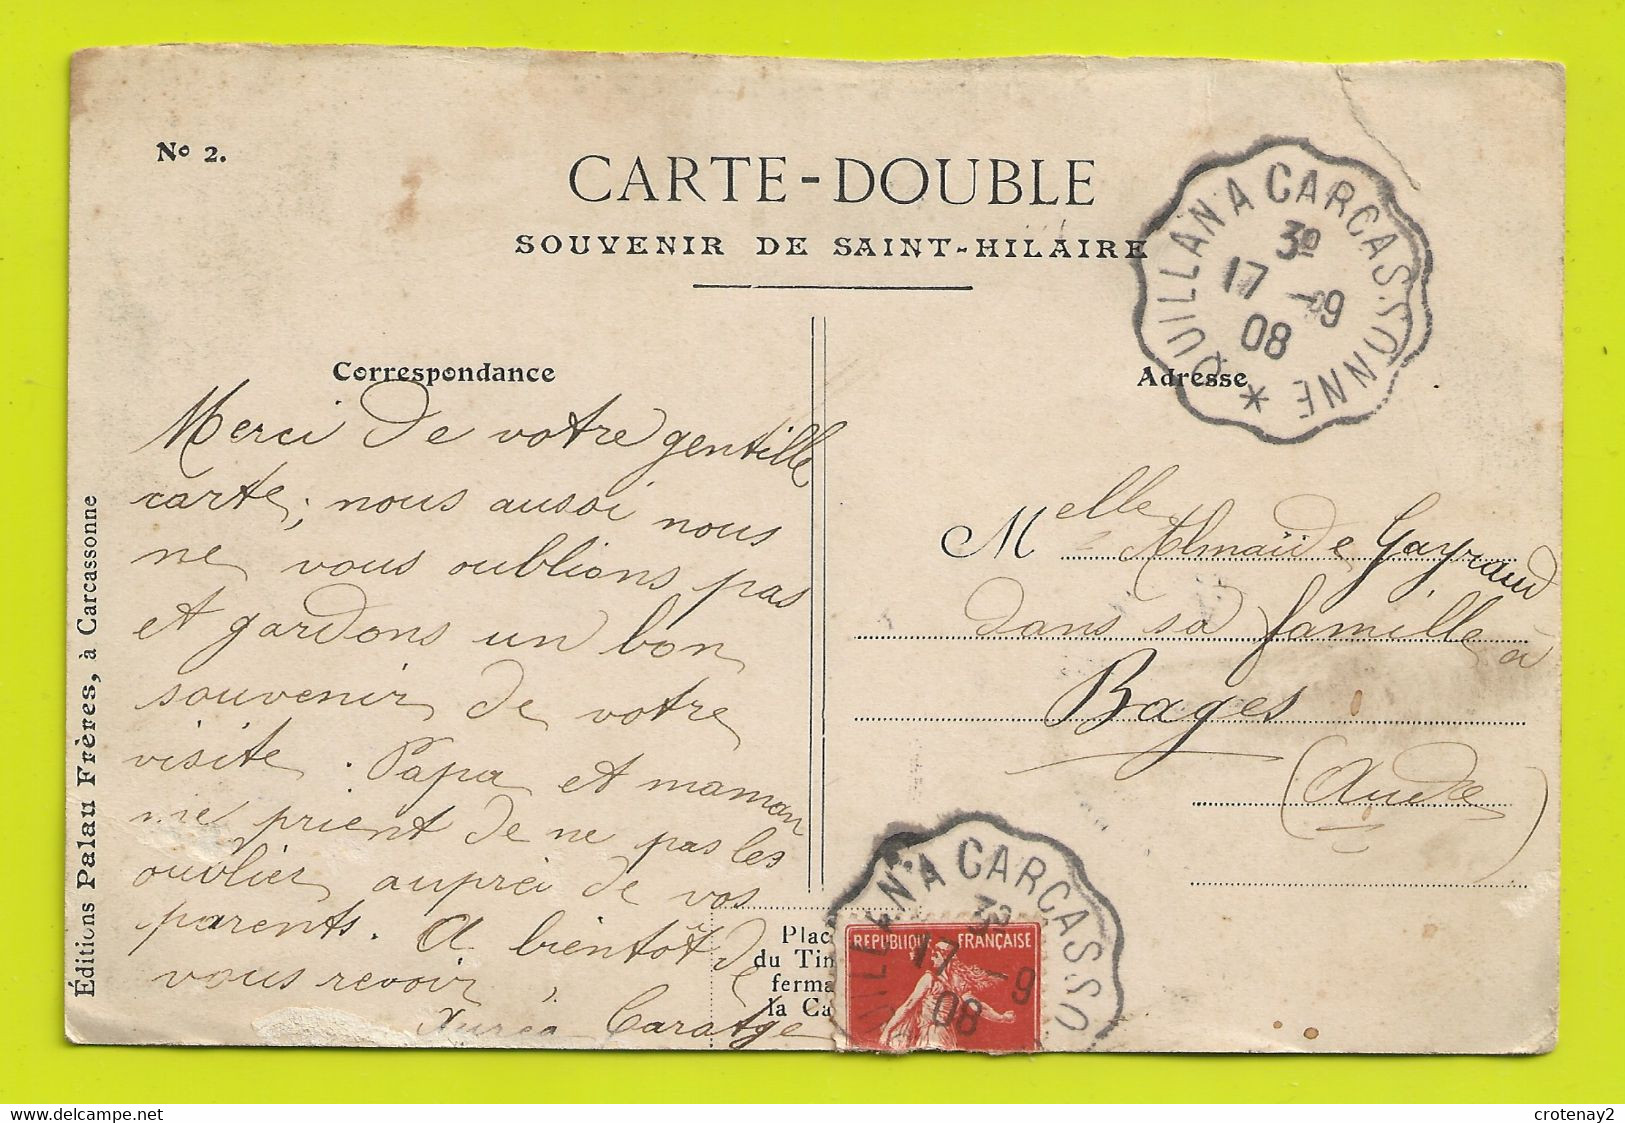 No 2.
CARTE-DOUBLE
SOUVENIR DE SAINT-HILAIRE
QUILLAN A CARCASSONNE *
3º
17 -9
08
Correspondance
Adresse
Merci de votre gentille
carte; nous aussi nous
ne vous oublions pas
et gardons un bon
souvenir de votre
visite. Papa et maman
me prient de ne pas les
oublier auprès de vos
parents. A bientôt de
vous revoir,
Caratge
Melle Almaïde Gayraud
dans sa famille à
Bages
(Aude)
Éditions Palau Frères, à Carcassonne
Plac
du Tim
ferma
la Ca
REPUBLIQUE FRANÇAISE
QUILLAN A CARCASSO
3º
17 -9
08
delcampe.net
crotenay2